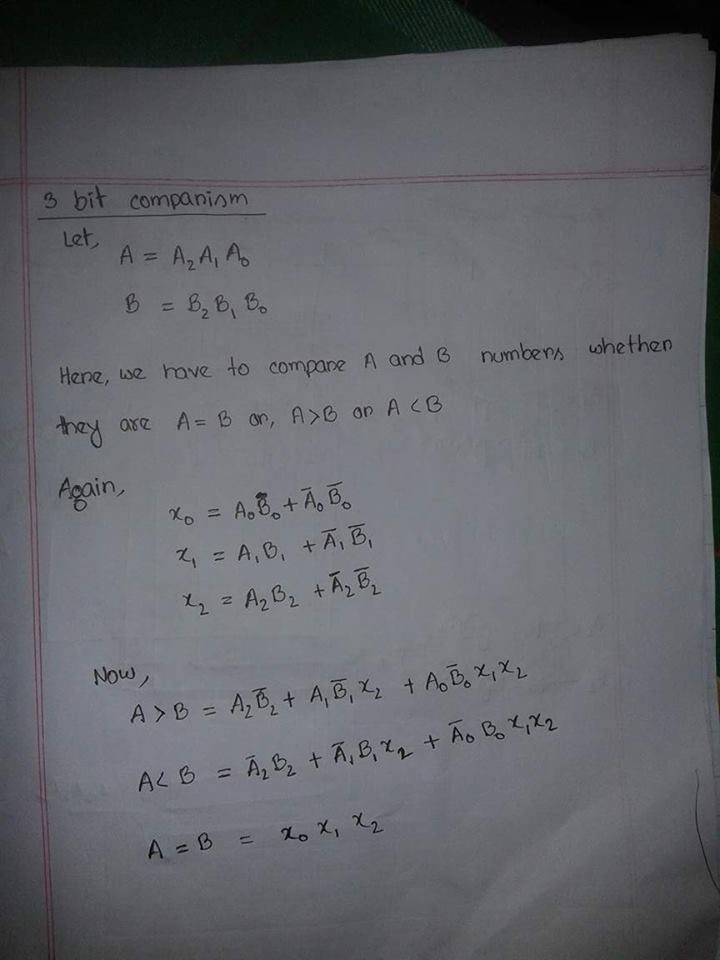 3 bit comparism
Let,
A = A₂A₁A₀
B = B₂B₁B₀
Here, we have to compare A and B numbers whether
they are A = B or, A>B or A<B
Again,
x₀ = A₀B₀ + A̅₀B̅₀
x₁ = A₁B₁ + A̅₁B̅₁
x₂ = A₂B₂ + A̅₂B̅₂
Now,
A > B = A₂B̅₂ + A₁B̅₁x₂ + A₀B̅₀x₁x₂
A < B = A̅₂B₂ + A̅₁B₁x₂ + A̅₀B₀x₁x₂
A = B = x₀x₁x₂